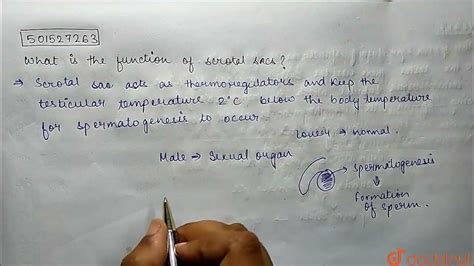 501527263
What is the function of scrotel sacs?
⇒ Scrotal sac acts as thermoregulators and keep the
testicular temperature 2°C below the body temperature
for spermatogenesis to occur
Lower → normal.
Male ⇒ Sexual organ
Spermatogenesis
Formation
of sperm.
doubtnut